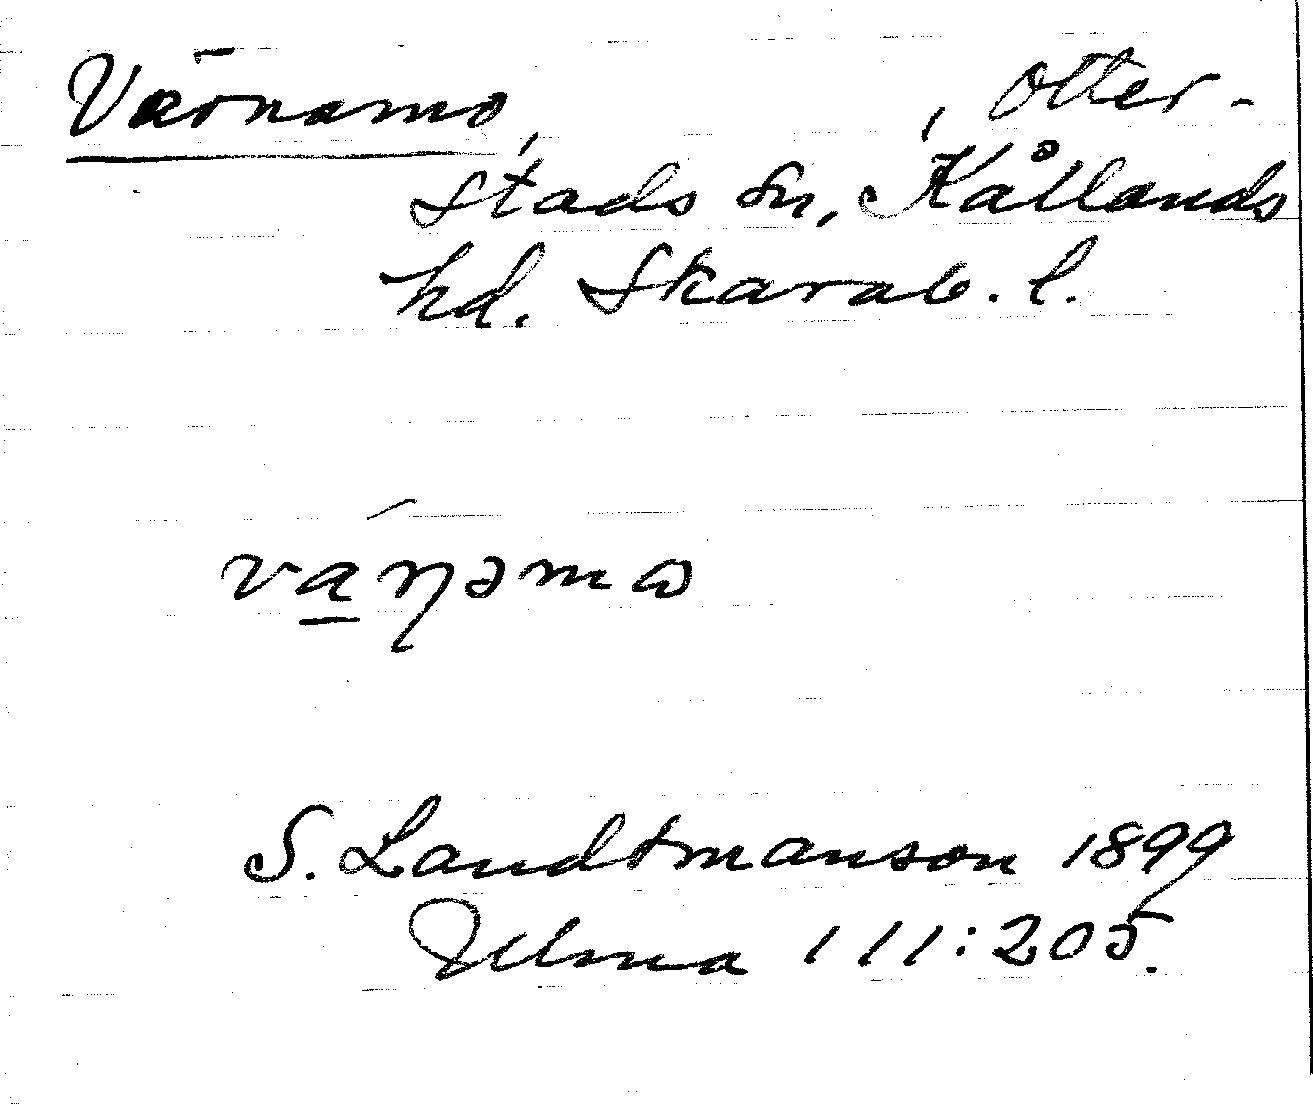 Värnamo, , Otter-
stads sn, Kållands
hd. Skarab. l.
va̱ɳəmω
S. Landtmanson 1899
Ulma 111:205.